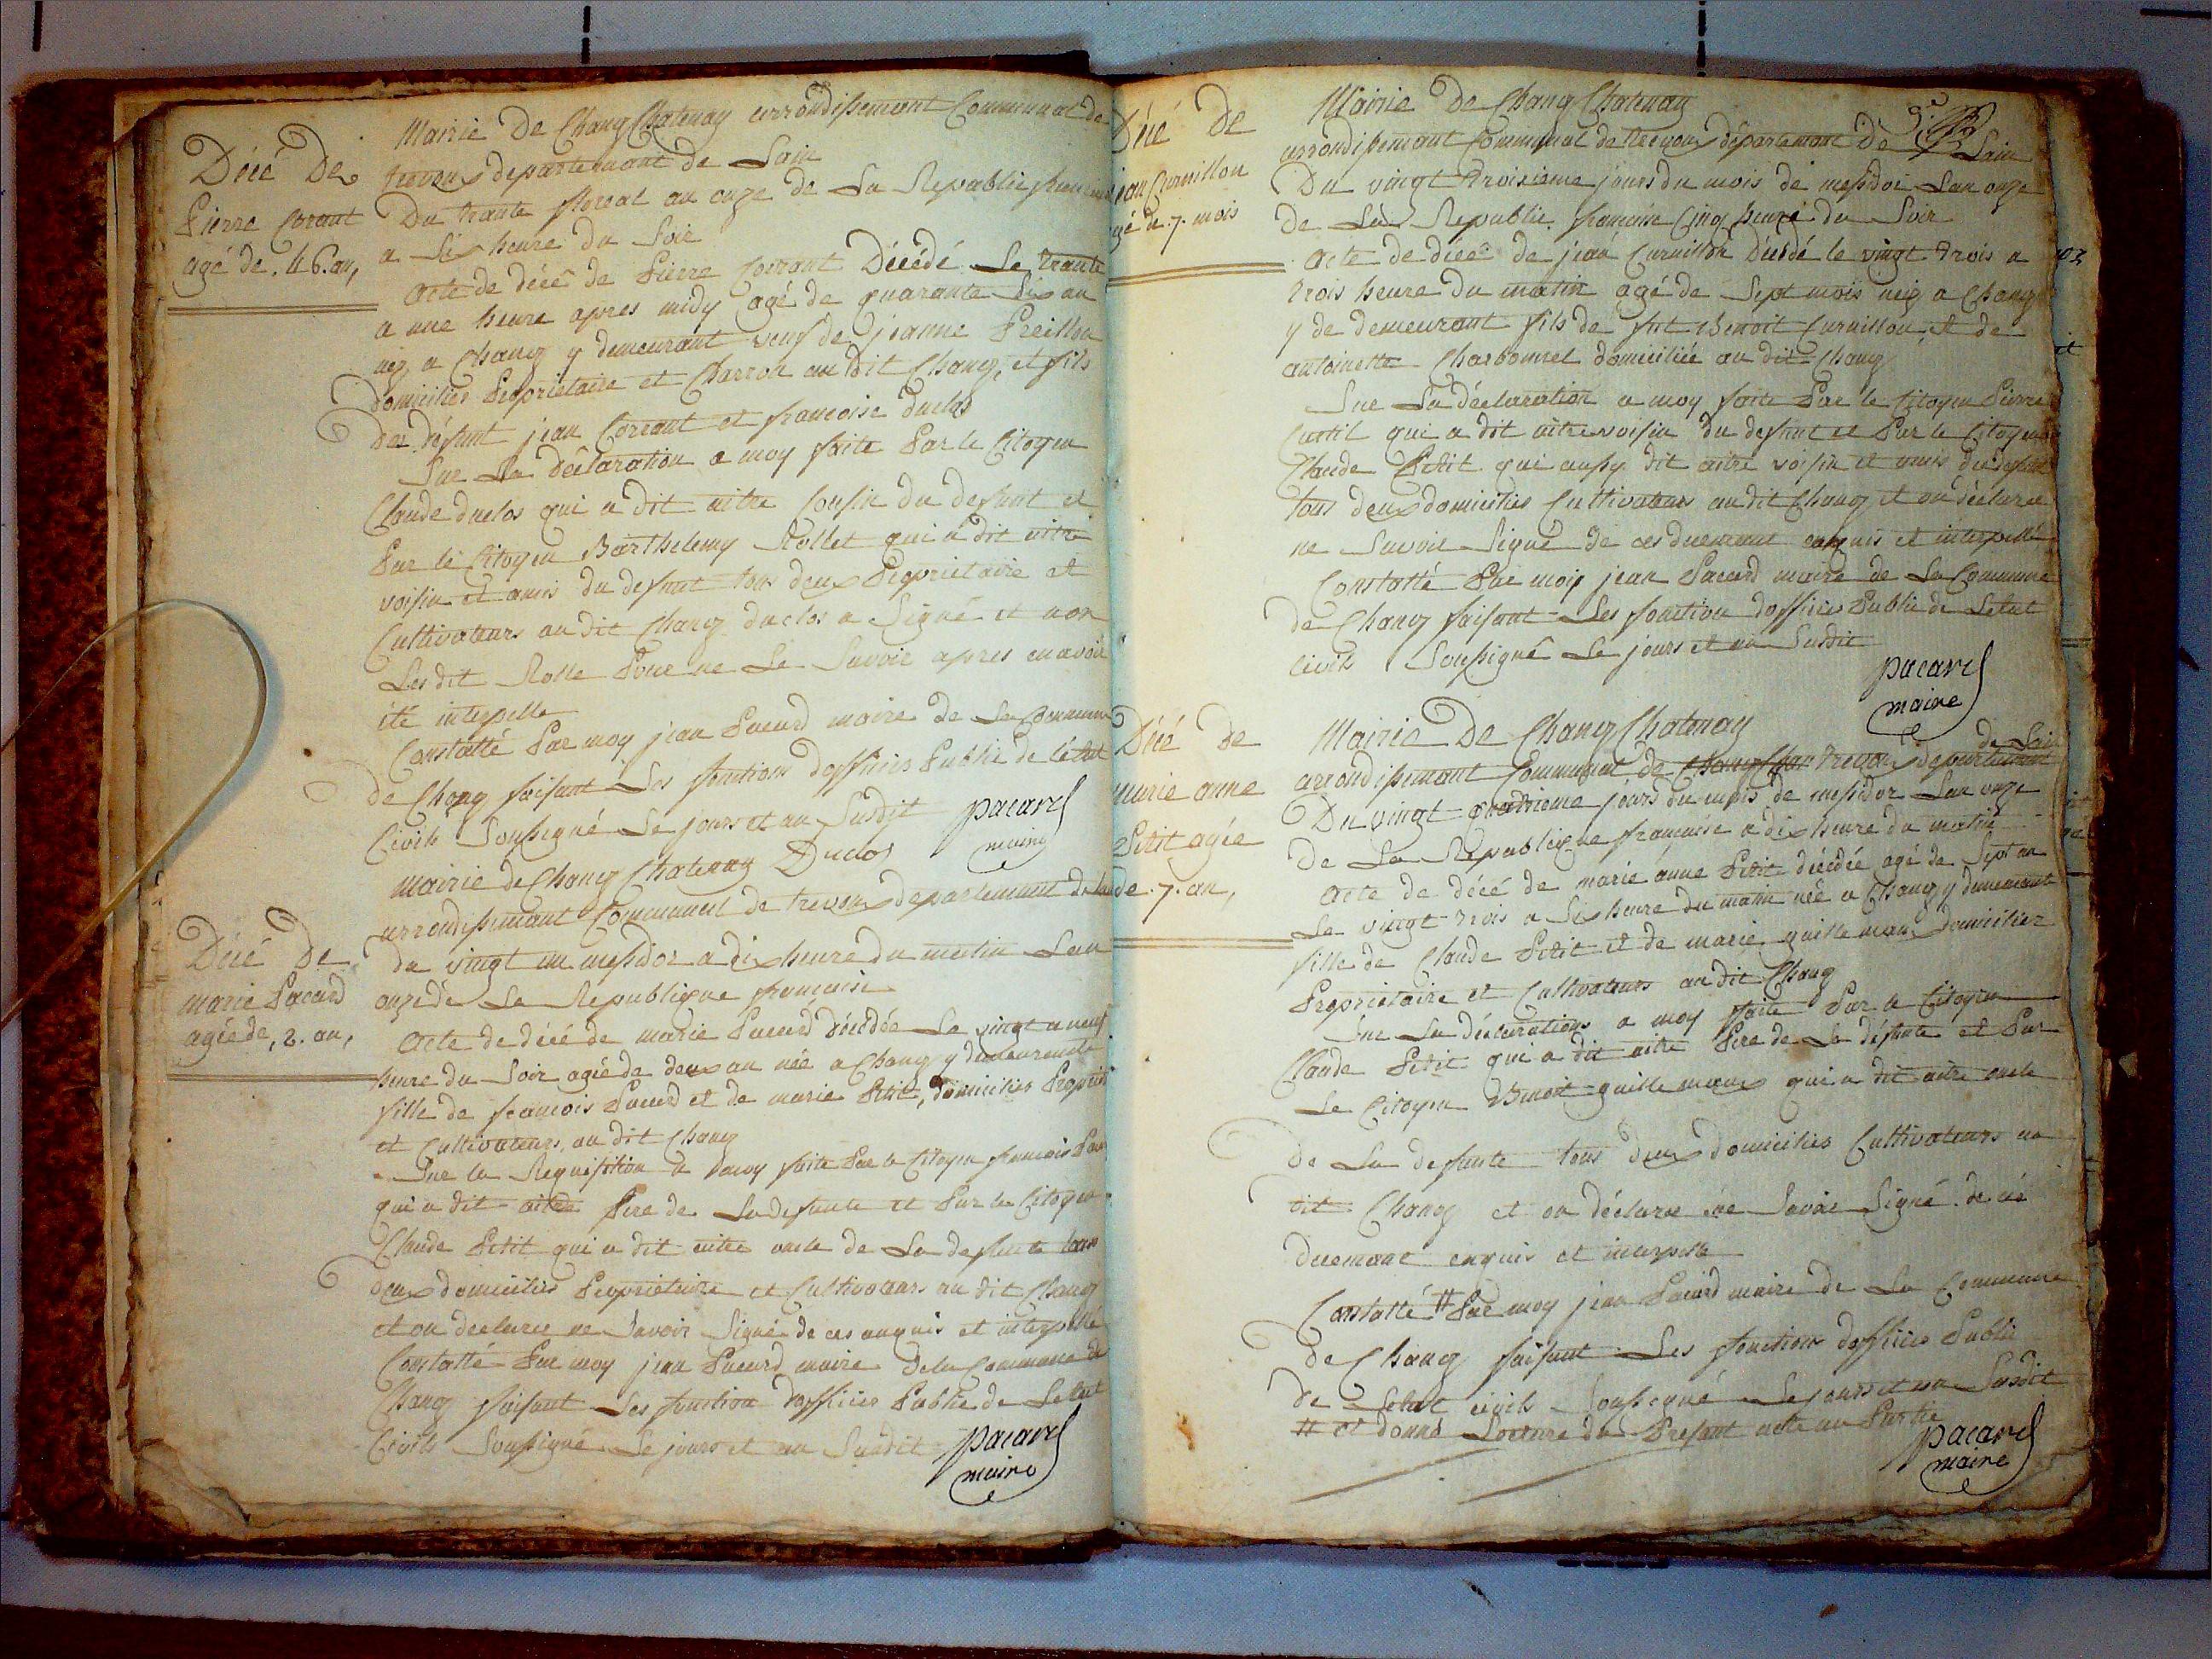 Décé De
Pierre Corant
agé de .46. an,
Mairie De Chang Chatenay arrondissemant Communal de
trevoux departemant de Lain
Du trante floreal an onze de La Republic francaise
a Six heure du Soir
Acte de décé de Pierre Corrant Décédé Le trante
a une heure apres midy agé de quarante Six an
néz a Chang y demeurant veuf de jeanne Preillon
domicilies Proprietaire et Charron au dit Chang, et fils
des défunt jean Corrant et francoise duclos
Sur La Déclaration a moy faite Par le Citoyen
Claude duclos qui a dit aitre Cousin du defunt et
Par le Citoyen Barthelemy Rollet qui a dit aitre
voisin et amis du defunt tous deux Proprietaire et
Cultivateurs au dit Chang duclos a Signé et non
Ledit Rolle Pour ne Le Savoir apres en avoir
été interpelle
Constatté Par moy jean Pacard maire de La Commune
de Chang faisant Les fonctions dofficier Public de létat
Civils Soussigné Le jours et an Susdit
pacard
maire
Duclos
Décé De
marie Pacard
agée de, 2. an,
Mairie de Chang Chatenay
arrondissemant Communal de trevoux departemant de Lain
du vingt un messidor a dix heure du matin Lan
onze de La Republique francaise
Acte de décé de marie Pacard décédée Le vingt a neuf
heure du Soir agée de deux an née a Chang y demeurante
fille de francois Pacard et de marie Petit, domicilies Propriet
et Cultivateurs, au dit Chang
Sur la Requisition a moy faite Par le Citoyen francois Pac
qui a dit aitre Pere de La defunte et Par le Citoyen
Claude Petit qui a dit aitre oncle de La defunte tous
deux domicilies Proprietaire et Cultivateurs au dit Chang
et on declaree ne Savoir Signé de ces enquis et interpellé
Constatté Par moy jean Pacard maire de la Commune de
Chang faisant Les fonction dofficier Public de Letat
Civils Soussigné Le jours et an Susdit
pacard
maire
Décé De
jean Curnillon
agé de .7. mois
Mairie De Chang Chatenay
arrondissemant Communal de Trevoux département de Lain
Du vingt troisieme jours du mois de messidor Lan onze
de La Republic francaise Cinq heure du Soir
Acte de décé de jean Curnillon Décédé le vingt trois a
trois heure du matin agé de Sept mois néz a Chang
y de demeurant fils de fut Benoit Curnillon et de
antoinette Charbonnet domiciliée au dit Chang
Sur La déclaration a moy faite Par le Citoyen Pierre
Curtil qui a dit aitre voisin du defunt et Par le Citoyen
Claude Petit qui aussy dit aitre voisin et amis du defunt
tous deux domicilies Cultivateurs au dit Chang et on déclaree
ne Savoir Signé de ces duemant enquis et interpellé
Constatté Par moy jean Pacard maire de La Commune
de Chang faisant Les fonction dofficier Public de Letat
Civils Soussigné Le jours et an Susdit
pacard
maire
Décé de
marie anne
Petit agée
de .7. an,
Mairie De Chang Chatenay
arrondissemant Communal de Chang Chat Trevoux departemant de Lain
Du vingt quatrieme jours du mois de messidor Lan onze
De La Republique francaise a dix heure du matin
Acte de décé de marie anne Petit décédée agé de Sept an
Le vingt trois a Six heure du matin née a Chang y demeurant
fille de Claude Petit et de marie guillemaux domicilier
Proprietaire et Cultivateurs au dit Chang
Sur La déclarations a moy faite Par le Citoyen
Claude Petit qui a dit aitre Pere de La défunte et Par
Le Citoyen Benoit guillemaux qui a dit aitre oncle
de La defunte tous deux domicilies Cultivateurs au
dit Chang et on déclaree ne Savoir Signé de ce
duemant enquis et interpelle
Constatté # Par moy jean Pacard maire de La Commune
de Chang faisant Les fonctions dofficier Public
de Letat civils Soussigné Le jours et an Susdit
# et donné Lecture du Present acte au Partie
pacard
maire